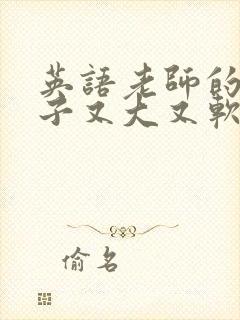 英語老師的
子又大又軟
偷名